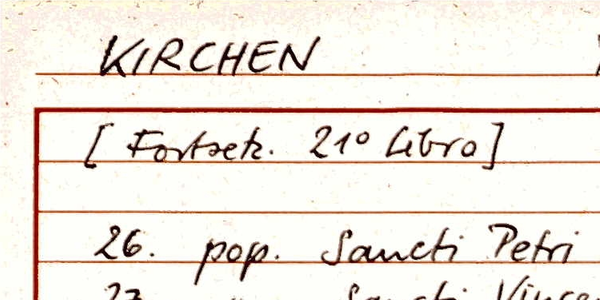 KIRCHEN
[ Fortsetz. 21º libro]
26. pop. Sancti Petri
27. Sancti